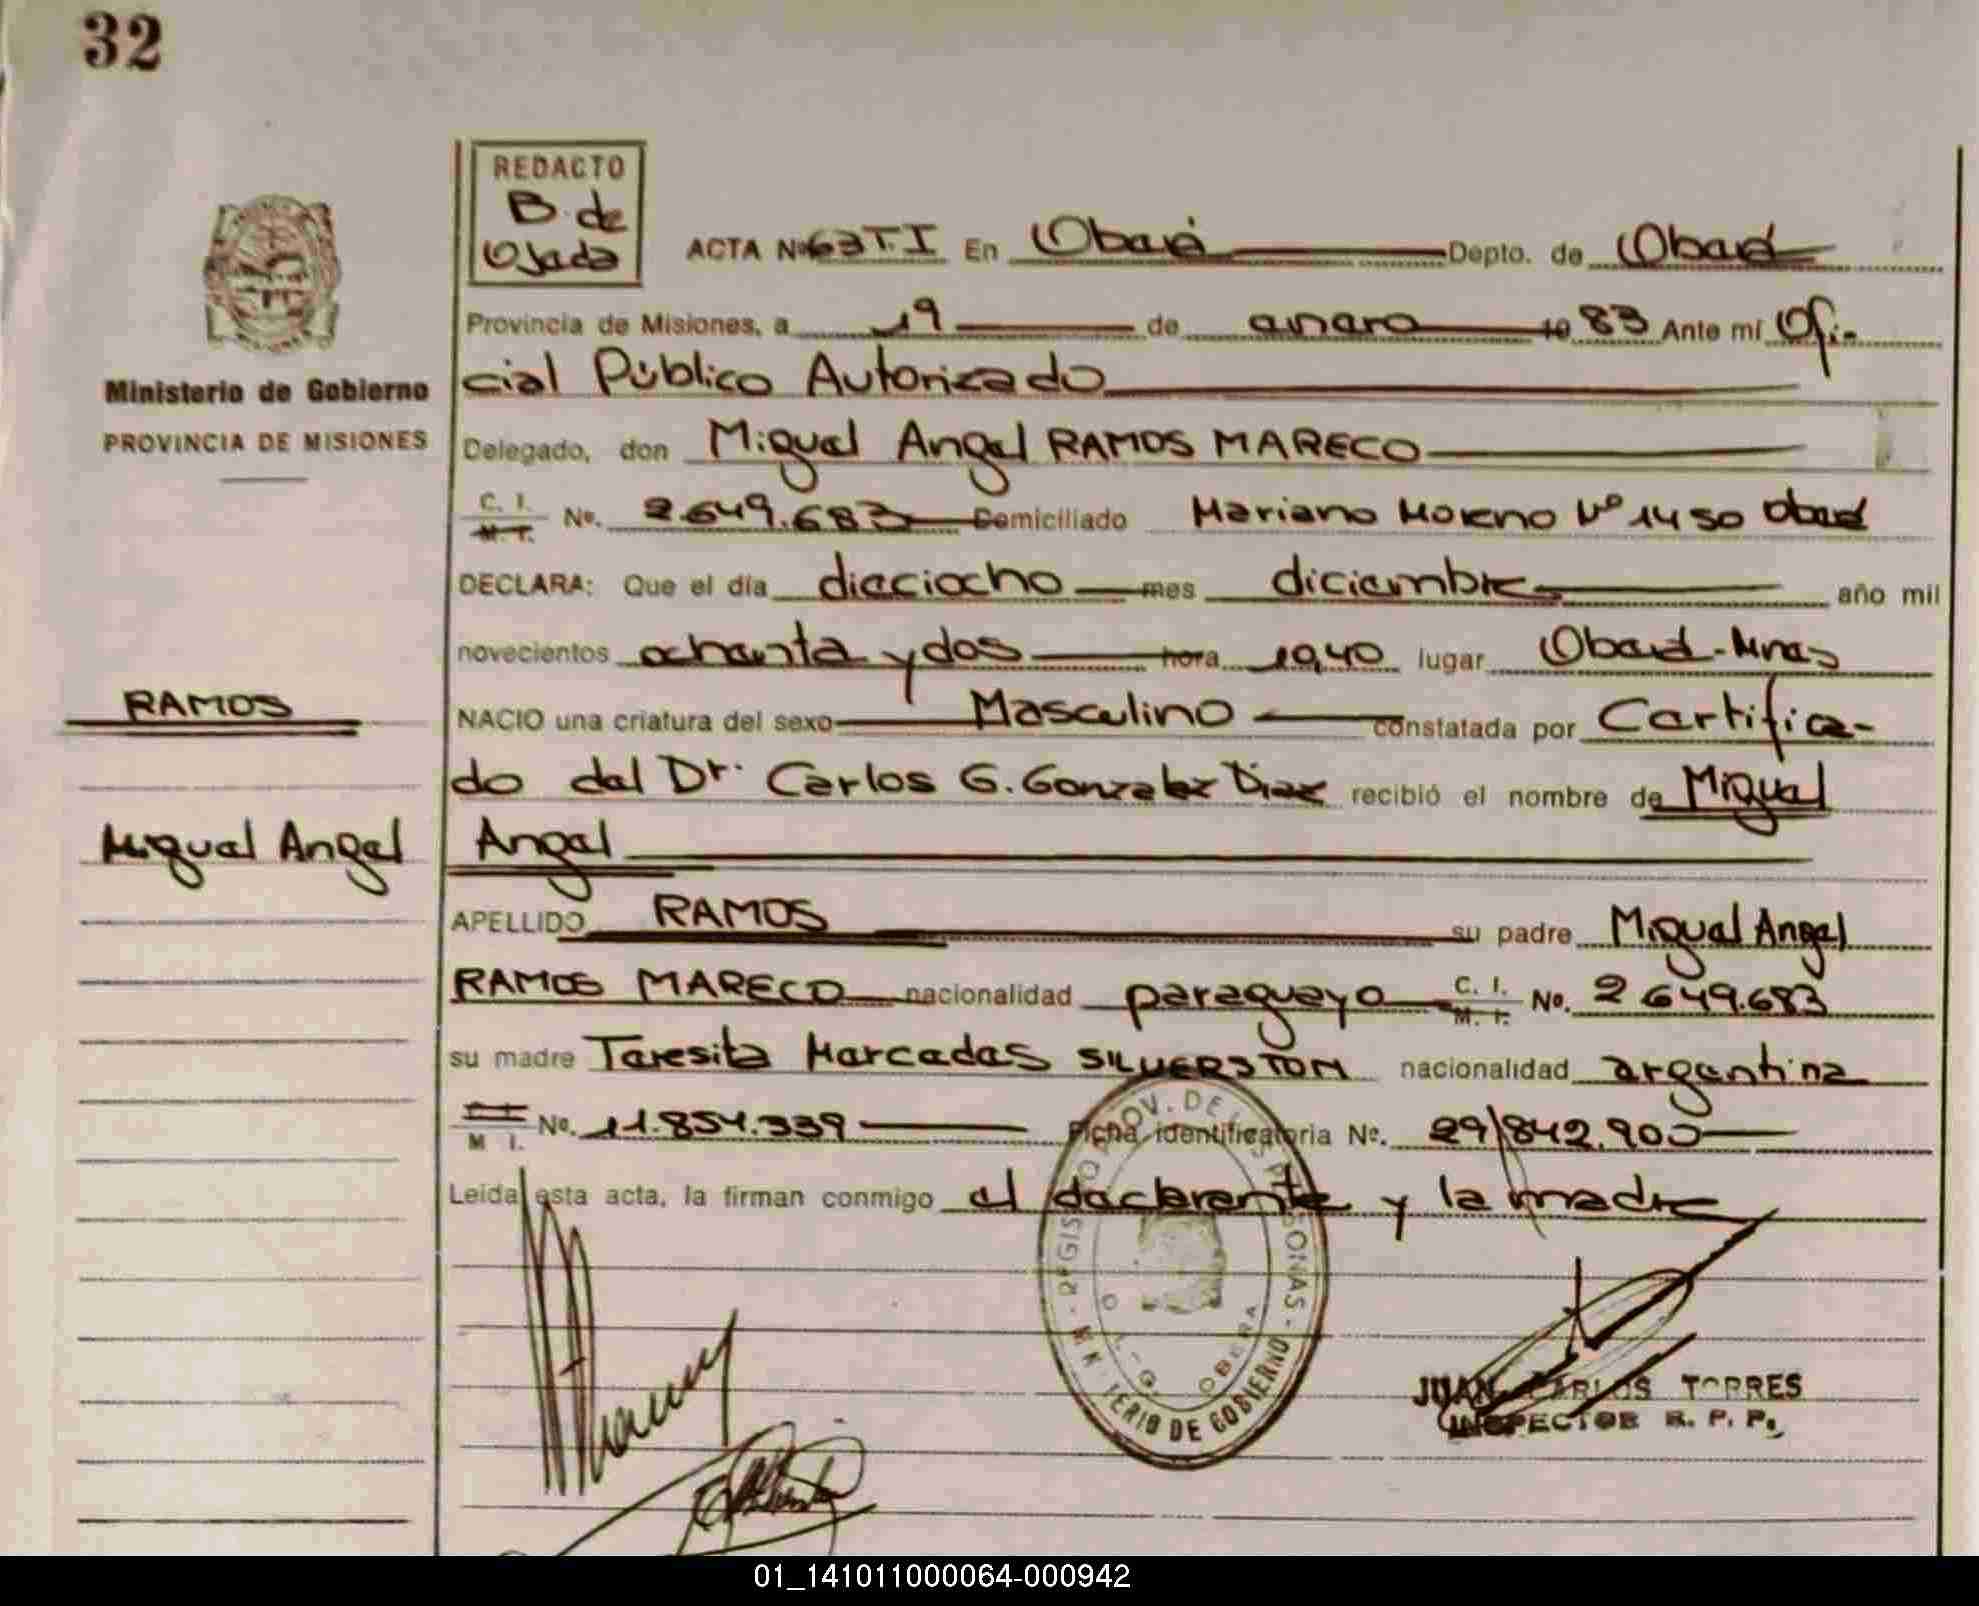 32
REDACTO
B. de
Ojeda
ACTA Nº 63 T. I En Oberá Depto. de Oberá
Provincia de Misiones, a 19 de enero 19 83 Ante mí Ofi-
cial Público Autorizado
Ministerio de Gobierno
PROVINCIA DE MISIONES
Delegado, don Miguel Angel RAMOS MARECO
C. I. M. I. No. 2.649.683 Domiciliado Mariano Moreno Nº 1450 Oberá
DECLARA: Que el día dieciocho mes diciembre año mil
novecientos ochenta y dos hora 19,40 lugar Oberá-Mnes
NACIO una criatura del sexo Masculino constatada por Certifica-
do del Dr. Carlos G. Gonzalez Diaz recibió el nombre de Miguel
Angel
RAMOS
Miguel Angel
APELLIDO RAMOS su padre Miguel Angel
RAMOS MARECO nacionalidad paraguayo C. I. M. I. No. 2.649.683
su madre Teresita Mercedes SILVERSTOM nacionalidad argentina
M I. No. 11.854.339 Ficha identificatoria No. 29/842.900
Leida esta acta, la firman conmigo el declarante y la madre
REGISTRO PROV. DE LAS PERSONAS
MINISTERIO DE GOBIERNO
OBERA
JUAN CARLOS TORRES
INSPECTOR R. P. P.
01_141011000064-000942